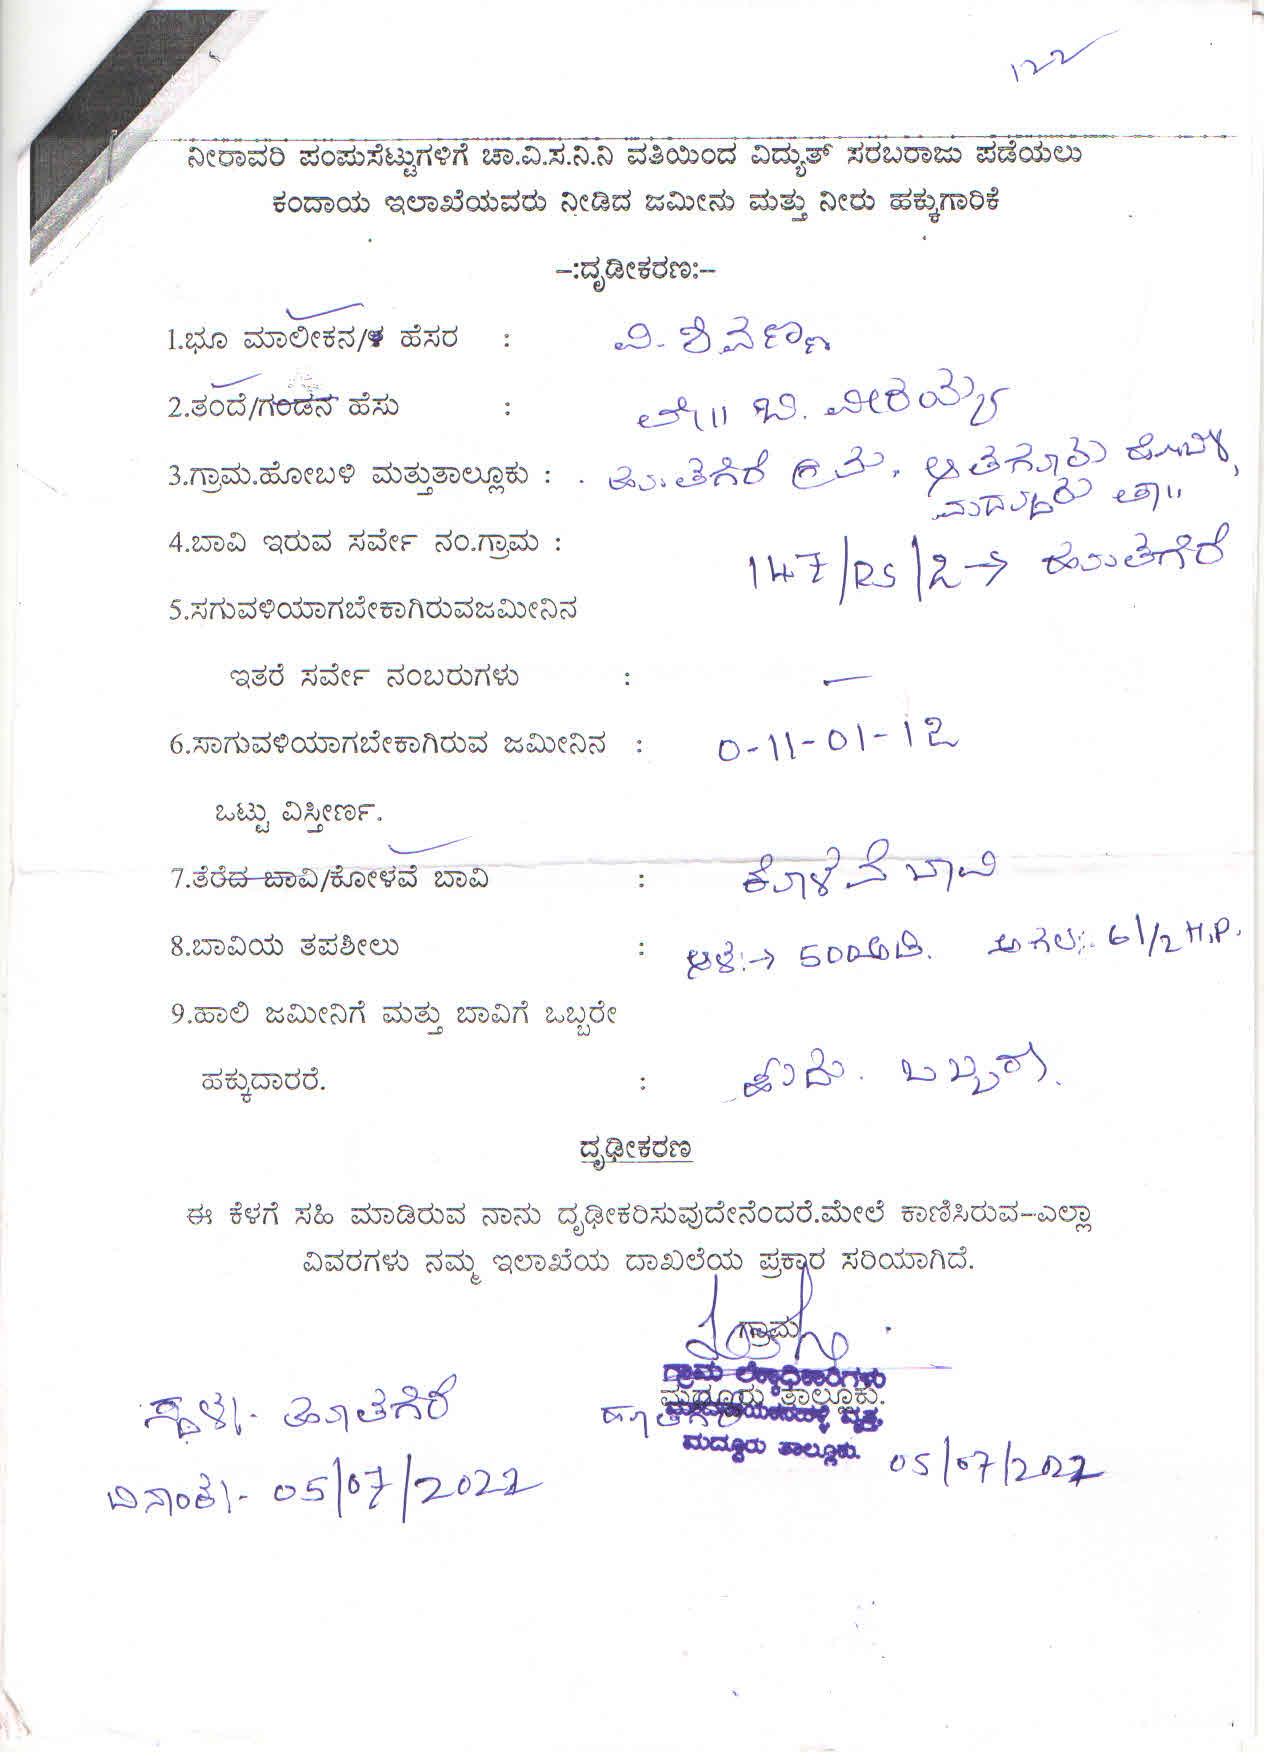 122
ನೀರಾವರಿ ಪಂಪುಸೆಟ್ಟುಗಳಿಗೆ ಚಾ.ವಿ.ಸ.ನಿ.ನಿ ವತಿಯಿಂದ ವಿದ್ಯುತ್ ಸರಬರಾಜು ಪಡೆಯಲು
ಕಂದಾಯ ಇಲಾಖೆಯವರು ನೀಡಿದ ಜಮೀನು ಮತ್ತು ನೀರು ಹಕ್ಕುಗಾರಿಕೆ
-:ದೃಡೀಕರಣ:-
1.ಭೂ ಮಾಲೀಕನ/ಳ ಹೆಸರ : ವಿ. ಶಿವಣ್ಣ
2.ತಂದೆ/ಗಂಡನ ಹೆಸು : ಲೇ|| ಬಿ. ವೀರಯ್ಯ
3.ಗ್ರಾಮ.ಹೋಬಳಿ ಮತ್ತುತಾಲ್ಲೂಕು : ಹೂತಗೆರೆ ಗ್ರಾಮ, ಆತಗೂರು ಹೋಬಳಿ,
ಮದ್ದೂರು ತಾ||
4.ಬಾವಿ ಇರುವ ಸರ್ವೇ ನಂ.ಗ್ರಾಮ : 147/RS/2→ ಹೂತಗೆರೆ
5.ಸಗುವಳಿಯಾಗಬೇಕಾಗಿರುವಜಮೀನಿನ
ಇತರೆ ಸರ್ವೇ ನಂಬರುಗಳು : —
6.ಸಾಗುವಳಿಯಾಗಬೇಕಾಗಿರುವ ಜಮೀನಿನ : 0-11-01-12
ಒಟ್ಟು ವಿಸ್ತೀರ್ಣ.
7.ತೆರೆದ ಬಾವಿ/ಕೋಳವೆ ಬಾವಿ : ಕೊಳವೆ ಬಾವಿ
8.ಬಾವಿಯ ತಪಶೀಲು : ಆಳ:→ 500ಅಡಿ. ಅಗಲ:. 6 1/2 H.P.
9.ಹಾಲಿ ಜಮೀನಿಗೆ ಮತ್ತು ಬಾವಿಗೆ ಒಬ್ಬರೇ
ಹಕ್ಕುದಾರರೆ. : ಹೌದು. ಒಬ್ಬರೇ.
ದೃಢೀಕರಣ
ಈ ಕೆಳಗೆ ಸಹಿ ಮಾಡಿರುವ ನಾನು ದೃಢೀಕರಿಸುವುದೇನೆಂದರೆ.ಮೇಲೆ ಕಾಣಿಸಿರುವ-ಎಲ್ಲಾ
ವಿವರಗಳು ನಮ್ಮ ಇಲಾಖೆಯ ದಾಖಲೆಯ ಪ್ರಕಾರ ಸರಿಯಾಗಿದೆ.
ಗ್ರಾಮ
ಗ್ರಾಮ ಲೆಕ್ಕಾಧಿಕಾರಿಗಳು
ಮದ್ದೂರು ತಾಲ್ಲೂಕು.
ಸ್ಥಳ/- ಹೂತಗೆರೆ
ಹೂತಗೆರೆ ವೃತ್ತ,
ಮದ್ದೂರು ತಾಲ್ಲೂಕು. 05/07/2022
ದಿನಾಂಕ/- 05/07/2022